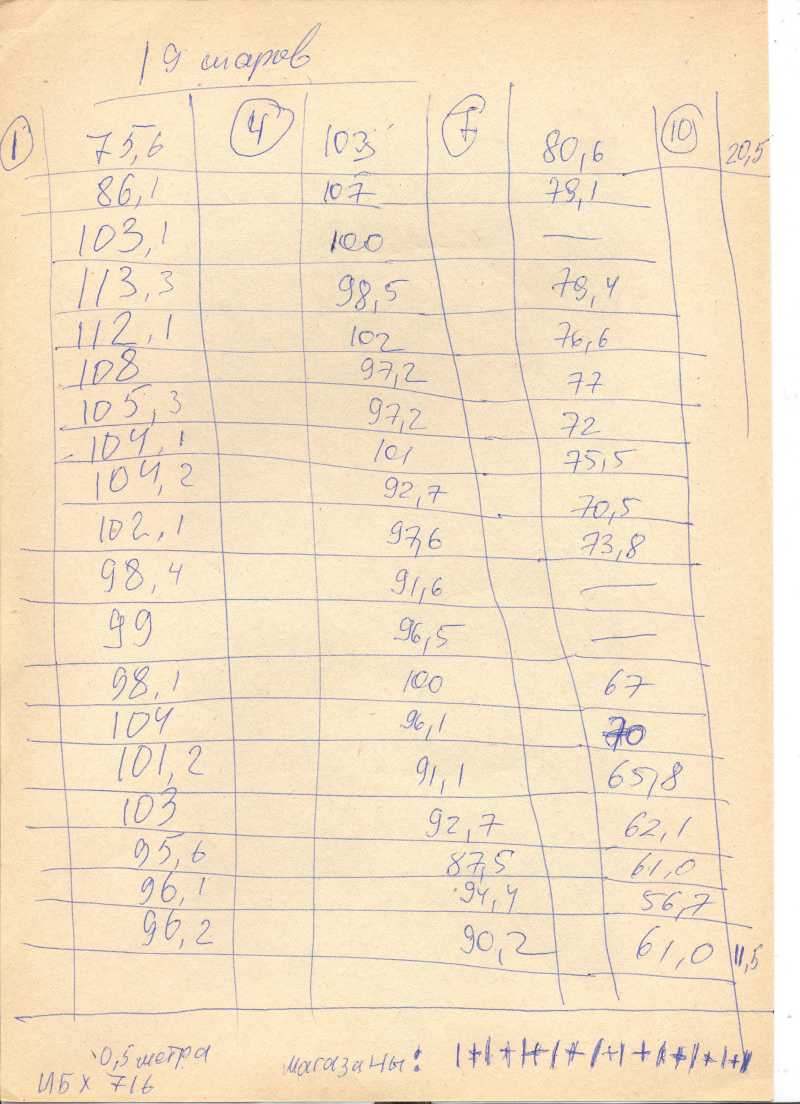 19 шаров
1 75,6 4 103 7 80,6 10 20,5
86,1 107 79,1
103,1 100 —
113,3 98,5 79,4
112,1 102 76,6
108 97,2 77
105,3 97,2 72
104,1 101 75,5
104,2 92,7 70,5
102,1 97,6 73,8
98,4 91,6 —
99 96,5 —
98,1 100 67
104 96,1 70
101,2 91,1 65,8
103 92,7 62,1
95,6 87,5 61,0
96,1 94,4 56,7
96,2 90,2 61,0 11,5
0,5 метра магазаны:
ИБХ 716